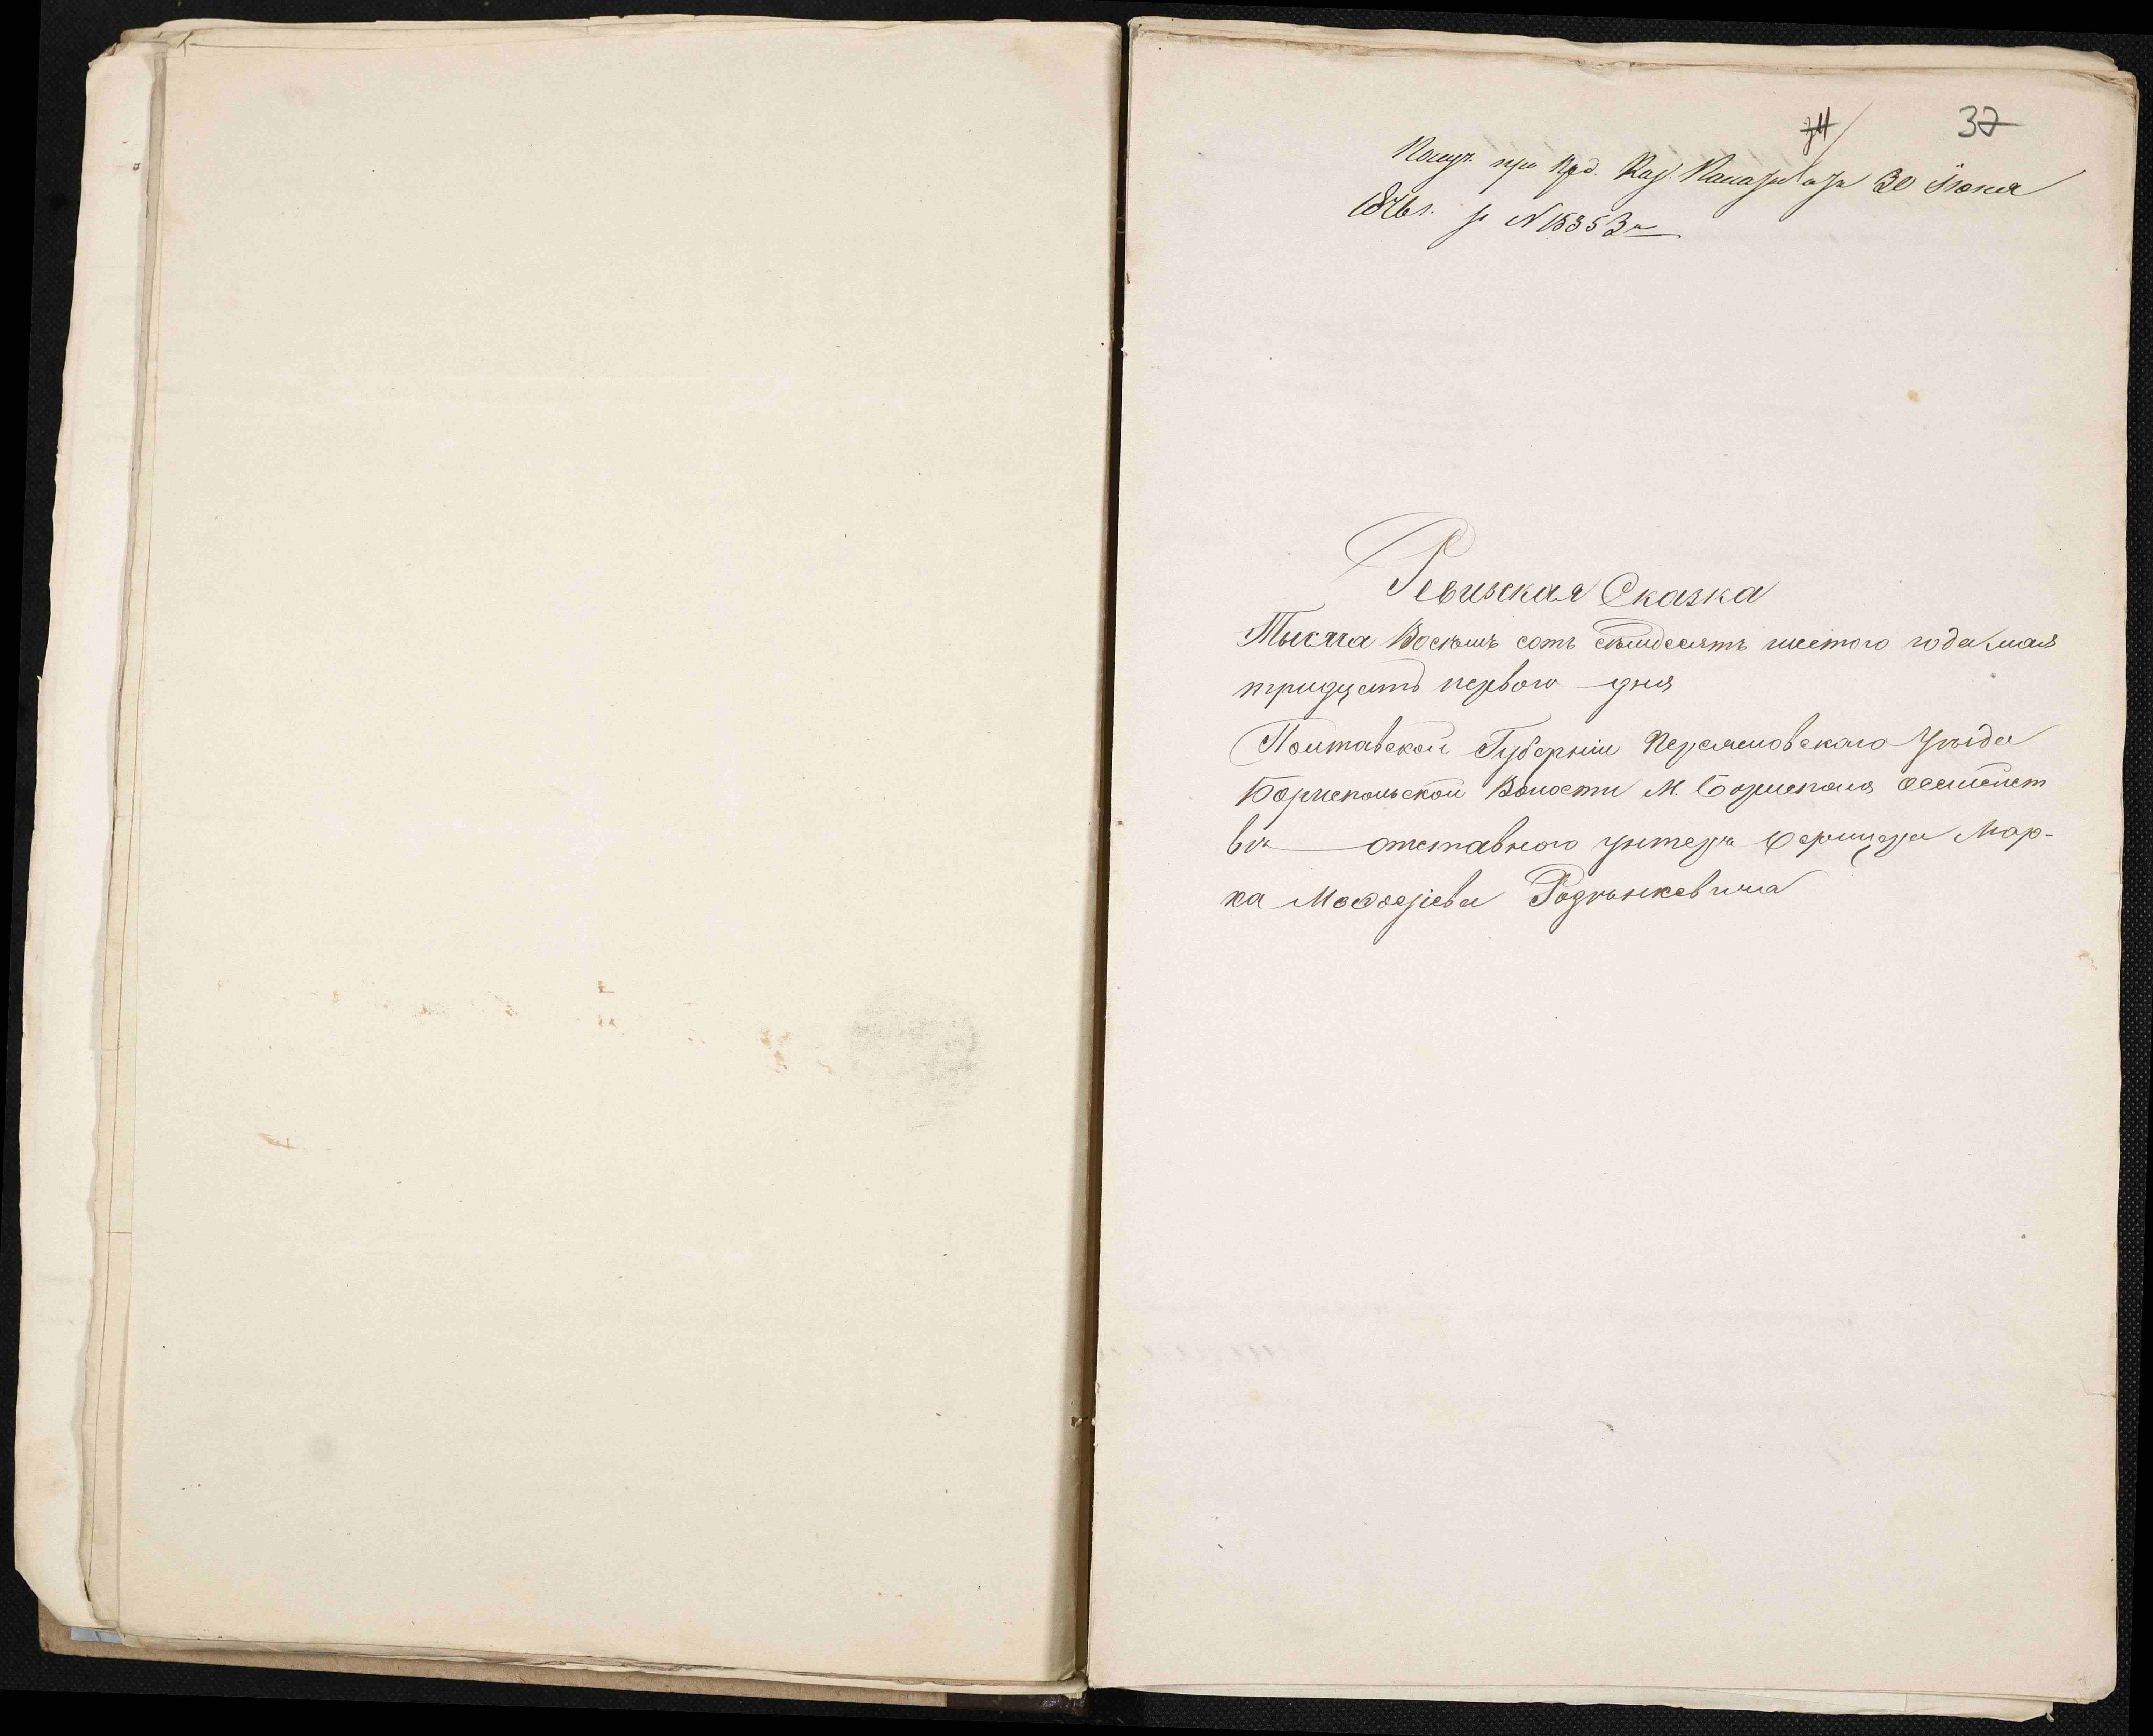 34 37
Получ. при пред. Каз. Палаты отъ 30 Іюня
1876 г. за N 15353 м
Ревизская Сказка
Тысяча Восемь сотъ семидесятъ шестого года мая
тридцать первого дня
Полтавской Губерніи Переяславского Уѣзда
Бориспольской Волости М. Борисполя о семейст
вѣ отставного унтеръ Офицера Мар-
ка Моѳоѳіева Родзынкевича